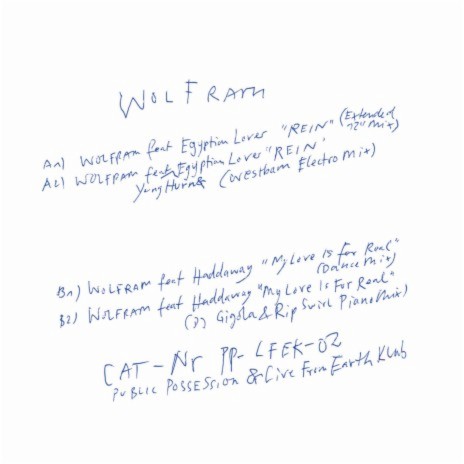 WOLFRAM
A1) WOLFRAM feat Egyptian Lover "REIN" (Extended 12" Mix)
A2) WOLFRAM feat Egyptian Lover "REIN"
Yung Hurn & (Westbam Electro Mix)
B1) WOLFRAM feat Haddaway "My Love Is For Real"
(Dance Mix)
B2) WOLFRAM feat Haddaway "My Love Is For Real"
Gigola & Rip Swirl Piano Mix)
CAT-Nr PP-LFEK-02
PUBLIC POSSESSION & Live From Earth Klub